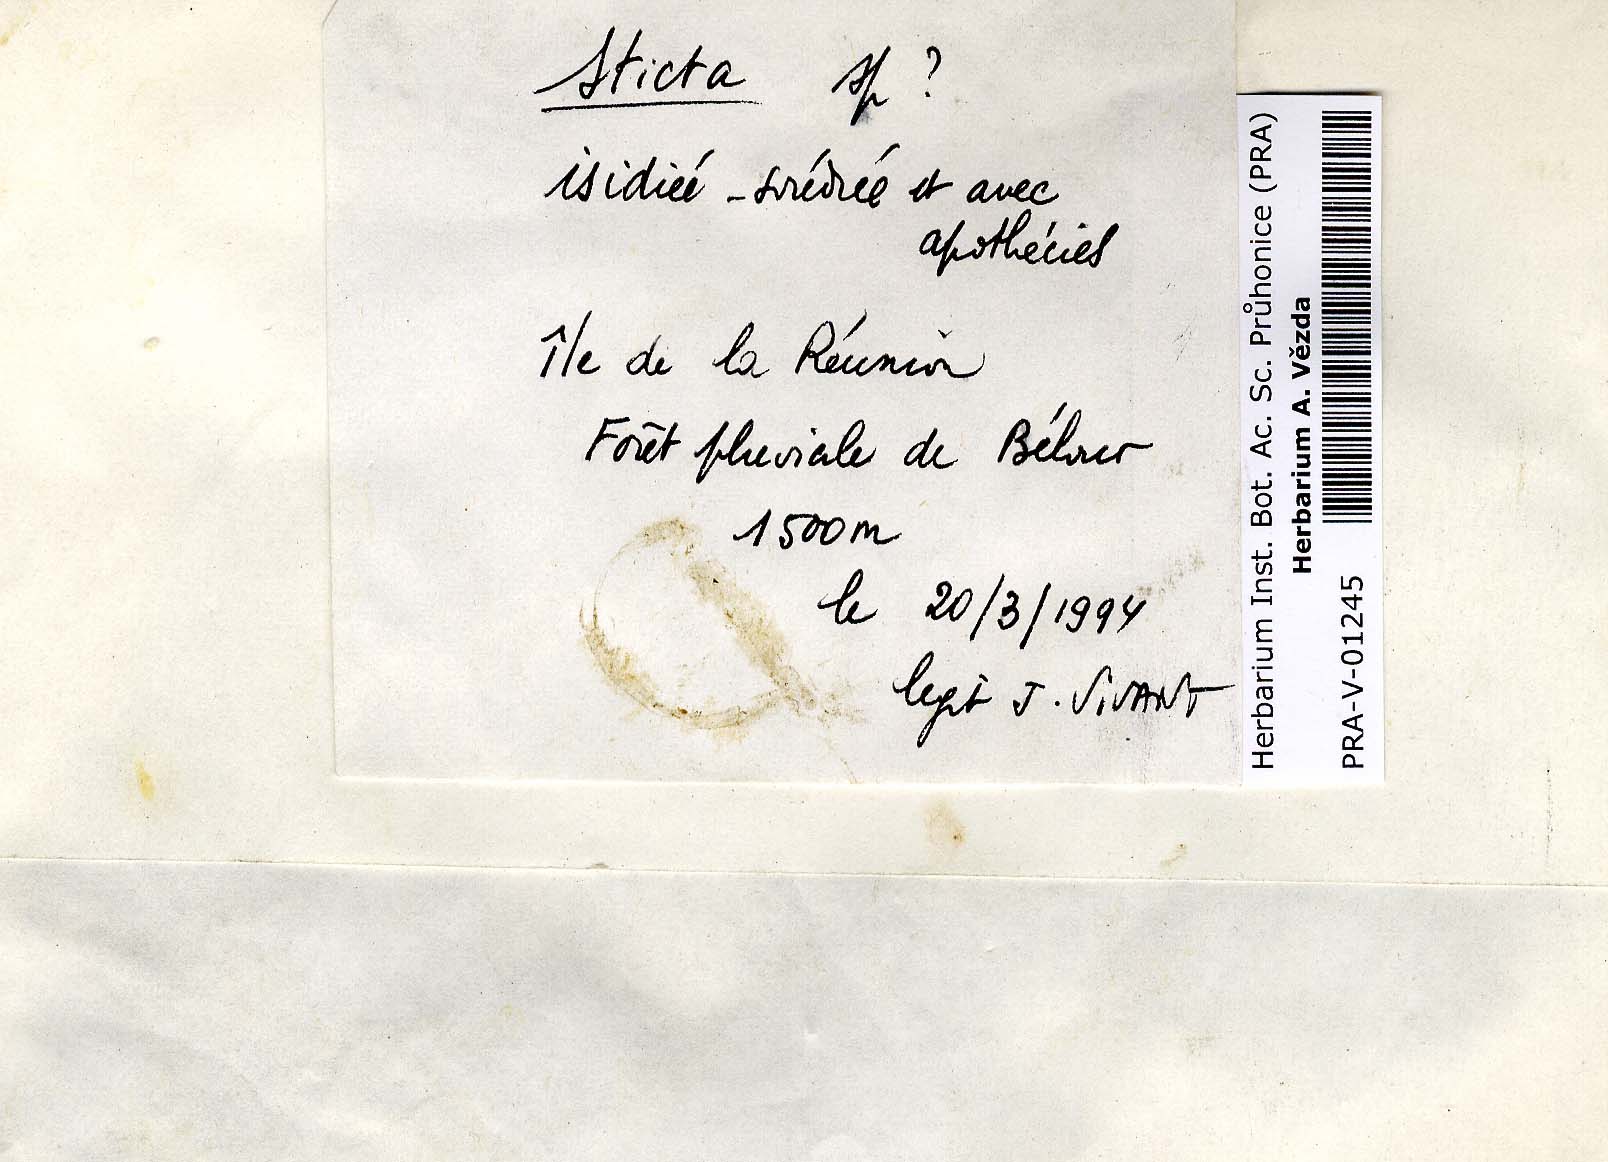 Sticta sp ?
isidiée - sorédiée et avec
apothécies
Île de la Réunion
Forêt pluviale de Bélouv
1500m
le 20/3/1994
legit J. VIVANT
Herbarium Inst. Bot. Ac. Sc. Průhonice (PRA)
Herbarium A. Vězda
PRA-V-01245